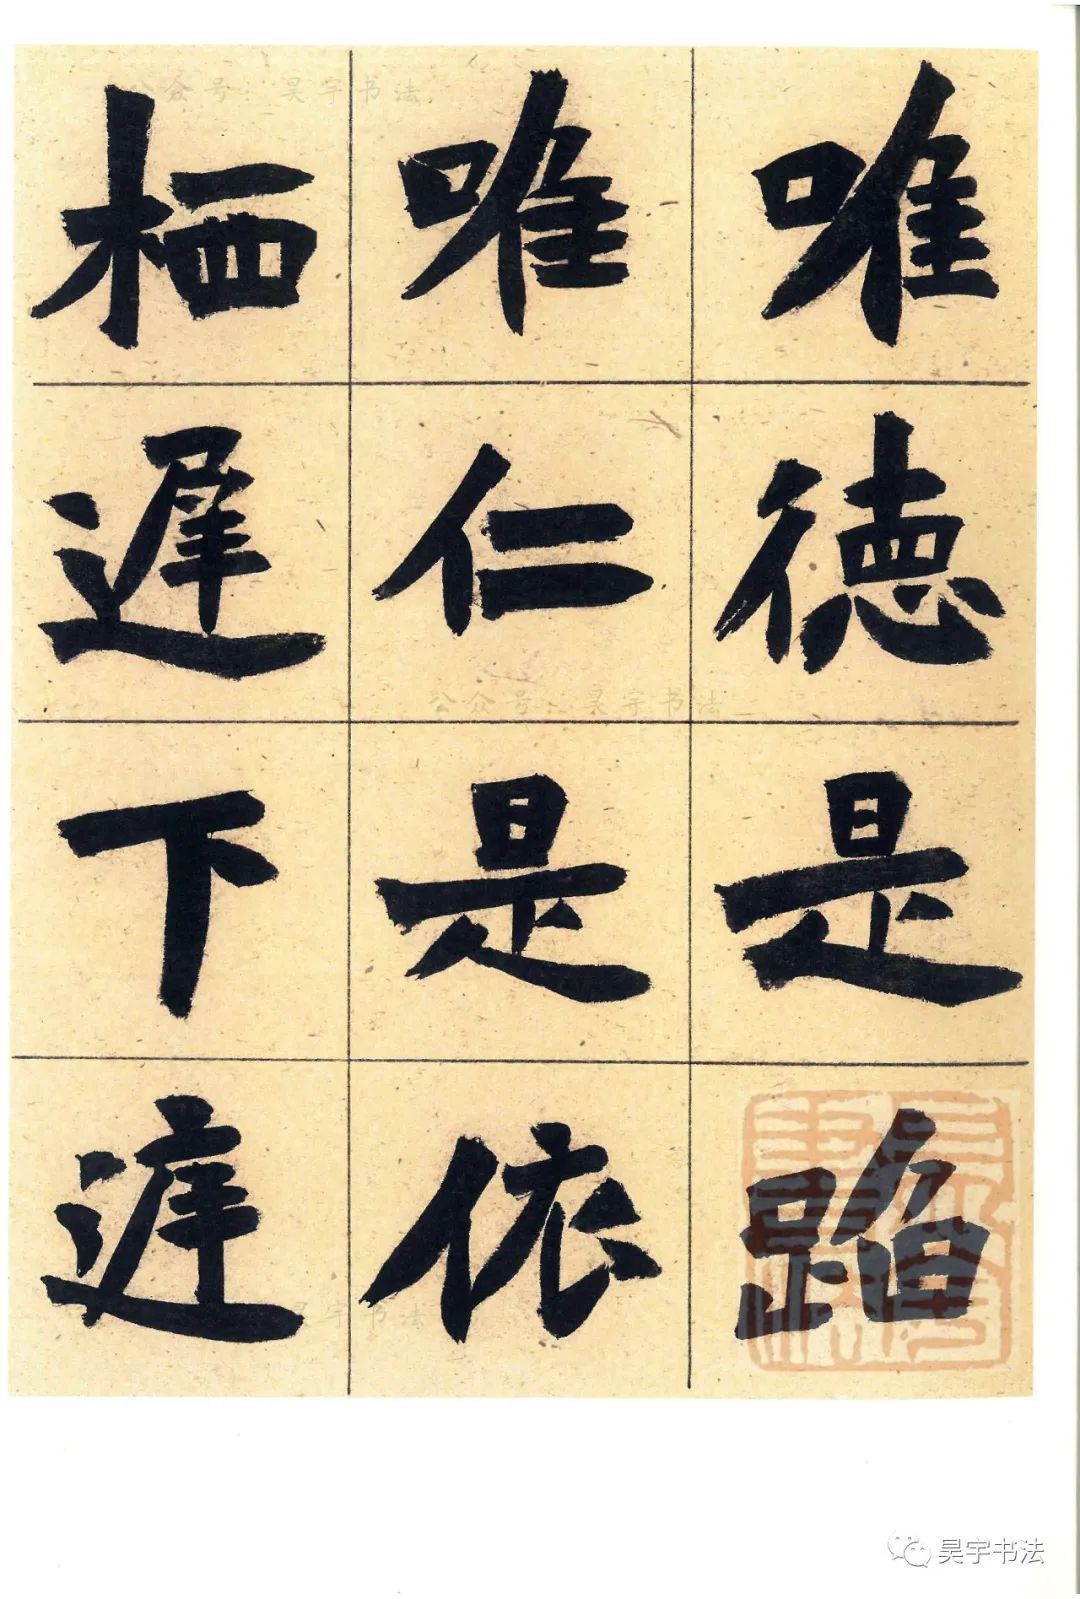 唯德是蹈
唯仁是依
栖遅下
公众号：昊宇书法
公众号：昊宇书法
昊宇书法
昊宇书法